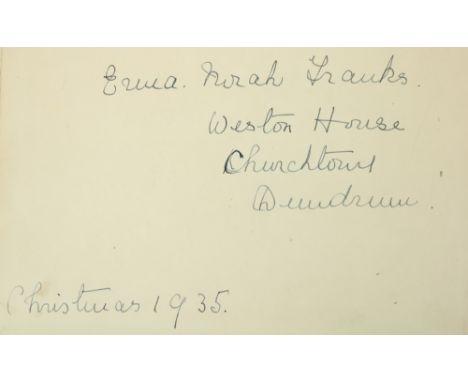 Erma. Norah Franks.
Weston House
Churchtown
Dundrum.
Christmas 1935.